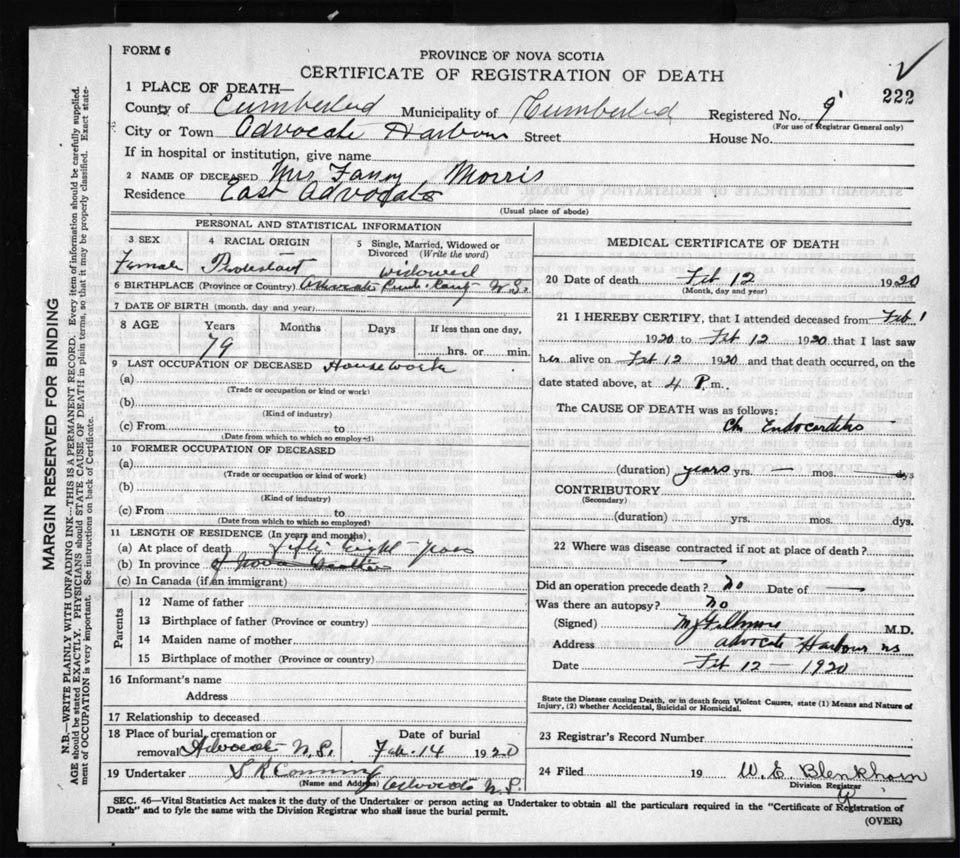 FORM 6
PROVINCE OF NOVA SCOTIA
CERTIFICATE OF REGISTRATION OF DEATH
222
1 PLACE OF DEATH—
County of Cumberland Municipality of Cumberland Registered No. 9
(For use of Registrar General only)
City or Town Advocate Harbour Street House No.
If in hospital or institution, give name
2 NAME OF DECEASED Mrs Fanny Morris
Residence East Advocate
(Usual place of abode)
PERSONAL AND STATISTICAL INFORMATION
3 SEX 4 RACIAL ORIGIN 5 Single, Married, Widowed or Divorced (Write the word)
Female Protestant Widowed
6 BIRTHPLACE (Province or Country) Advocate N.S.
7 DATE OF BIRTH (month, day and year)
8 AGE Years Months Days If less than one day,
79 hrs. or min.
9 LAST OCCUPATION OF DECEASED Housework
(a)
(Trade or occupation or kind or work)
(b)
(Kind of industry)
(c) From to
(Date from which to which so employed)
10 FORMER OCCUPATION OF DECEASED
(a)
(Trade or occupation or kind of work)
(b)
(Kind of industry)
(c) From to
(Date from which to which so employed)
11 LENGTH OF RESIDENCE (In years and months)
(a) At place of death Fifty Eight Years
(b) In province of Nova Scotia
(c) In Canada (if an immigrant)
Parents
12 Name of father
13 Birthplace of father (Province or country)
14 Maiden name of mother
15 Birthplace of mother (Province or country)
16 Informant's name
Address
17 Relationship to deceased
18 Place of burial, cremation or removal Advocate N.S. Date of burial Feb. 14 1920
19 Undertaker
(Name and Address) Advocate N.S.
MEDICAL CERTIFICATE OF DEATH
20 Date of death Feb 12 1920
(Month, day and year)
21 I HEREBY CERTIFY, that I attended deceased from Feb 1
1920 to Feb 12 1920 that I last saw
her alive on Feb 12 1920 and that death occurred, on the
date stated above, at 4 P.m.
The CAUSE OF DEATH was as follows:
Ch Endocarditis
(duration) years yrs. — mos. — dys
CONTRIBUTORY
(Secondary)
(duration) yrs. mos. dys.
22 Where was disease contracted if not at place of death?
—
Did an operation precede death? No Date of —
Was there an autopsy? No
(Signed) Fillmore M.D.
Address Advocate Harbour NS
Date Feb 12 — 1920
State the Disease causing Death, or in death from Violent Causes, state (1) Means and Nature of
Injury, (2) whether Accidental, Suicidal or Homicidal.
23 Registrar's Record Number
24 Filed 19 W. E. Blenkhorn
Division Registrar
SEC. 46—Vital Statistics Act makes it the duty of the Undertaker or person acting as Undertaker to obtain all the particulars required in the "Certificate of Registration of
Death" and to fyle the same with the Division Registrar who shall issue the burial permit.
(OVER)
MARGIN RESERVED FOR BINDING
N.B.—WRITE PLAINLY WITH UNFADING INK—THIS IS A PERMANENT RECORD. Every item of information should be carefully supplied.
AGE should be stated EXACTLY. PHYSICIANS should STATE CAUSE OF DEATH in plain terms, so that it may be properly classified. Exact state-
ment of OCCUPATION is very important. See instructions on back of Certificate.